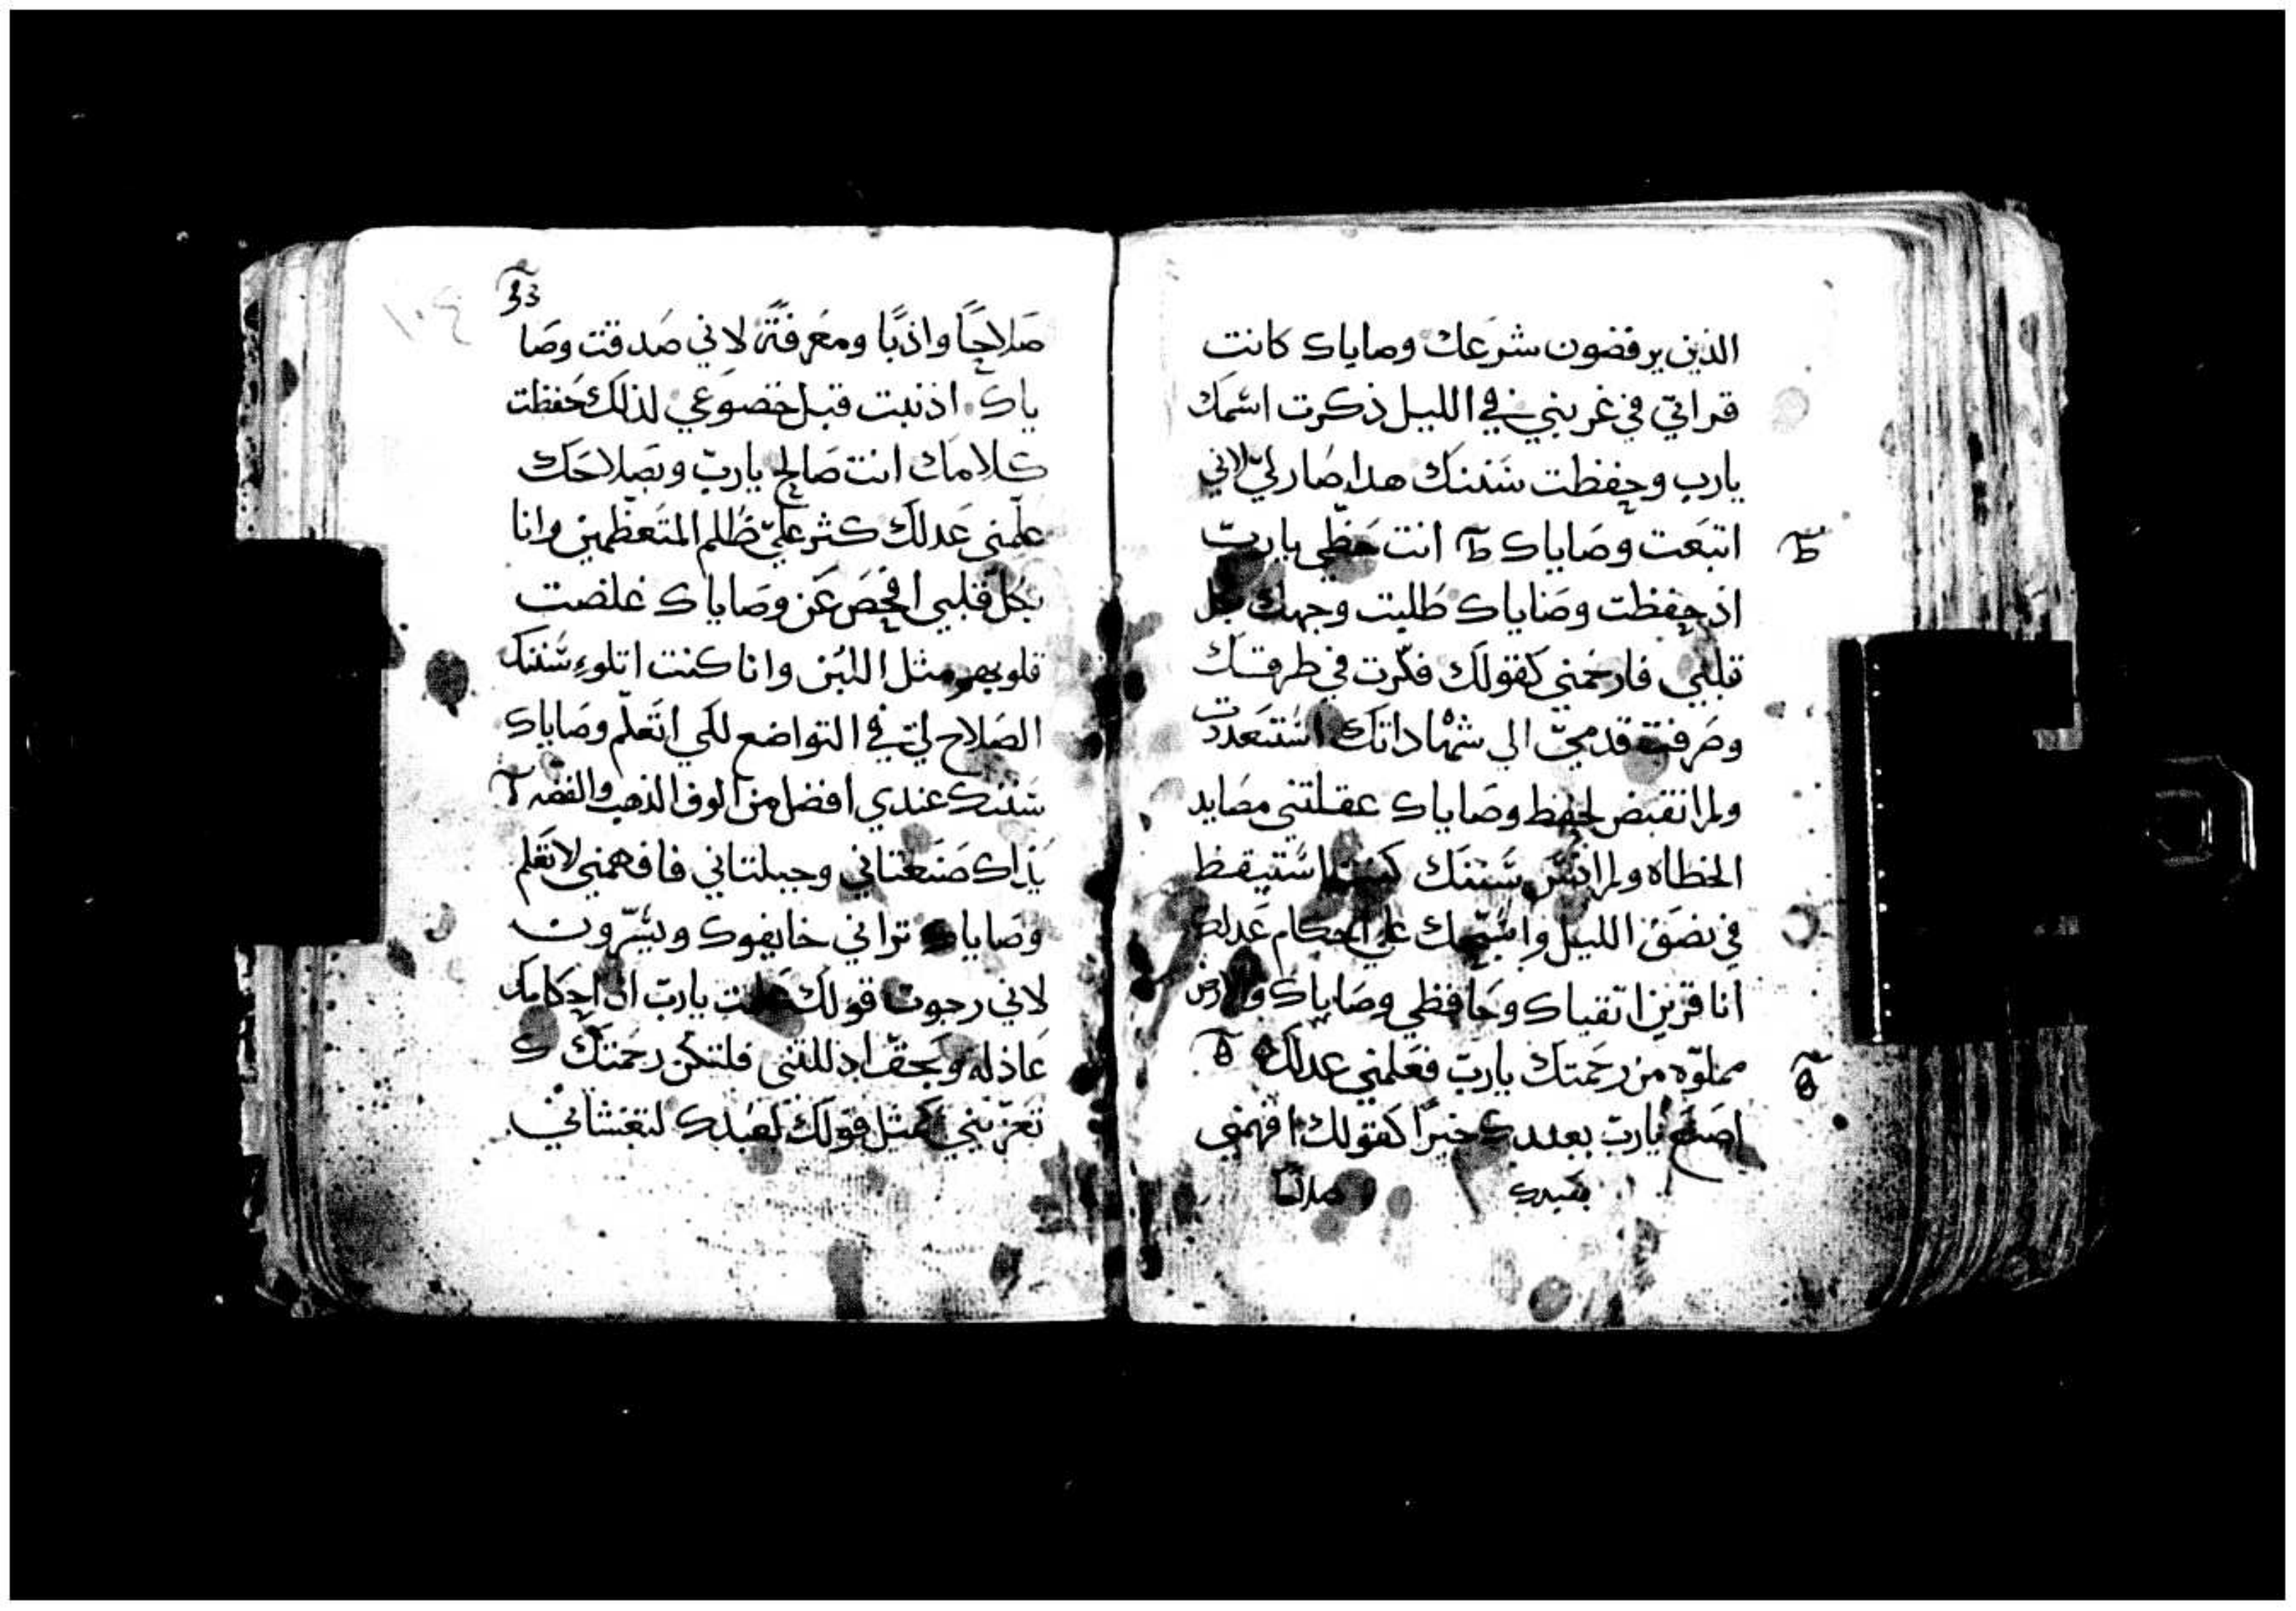 الذين يرفضون شرعك وصاياك كانت
قراتي في غربتي في الليل ذكرت اسمك
يارب وحفظت سننك هدا صار لي لاني
اتبعت وصاياك ط انت حظي يارب
ط
اذ حفظت وصاياك طلبت وجهك بكل
قلبي فارحمني كقولك فكرت في طرقتك
وصرفت قدمي الي شهاداتك استعددت
ولم انقبض لحفظ وصاياك عقلتني مصايد
الخطاه ولم انس سننك كنت استيقظ
في نصف الليل واسبحك علي احكام عدلك
انا قرين اتقياك وحافظي وصاياك والارض
مملوه من رحمتك يارب فعلمني عدلك
اصنع يارب بعبدك خيرا كقولك افهمني
بعبدك صلاحا
صلاحًا واذبًا ومعرفةً لاني صدقت وصا
ياك اذنبت قبل خضوعي لذلك حفظت
كلامك انت صالح يارب وبصلاحك
علمني عدلك كثر علي ظلم المتعظمين وانا
بكل قلبي افحص عن وصاياك غلضت
قلوبهم مثل اللبن وانا كنت اتلوء سننك
الصلاح لي في التواضع لكي اتعلم وصاياك
سننك عندي افضل من الوف الذهب والفضه
يداك صنعتاني وجبلتاني فافهمني لاتعلم
وصاياك تراني خايفوك ويسرون
لاني رجوت قولك علمت يارب ان احكامك
عاذله وبحق اذللتني فلتكن رحمتك
تعزيني كمثل قولك لعبدك لتغشاني